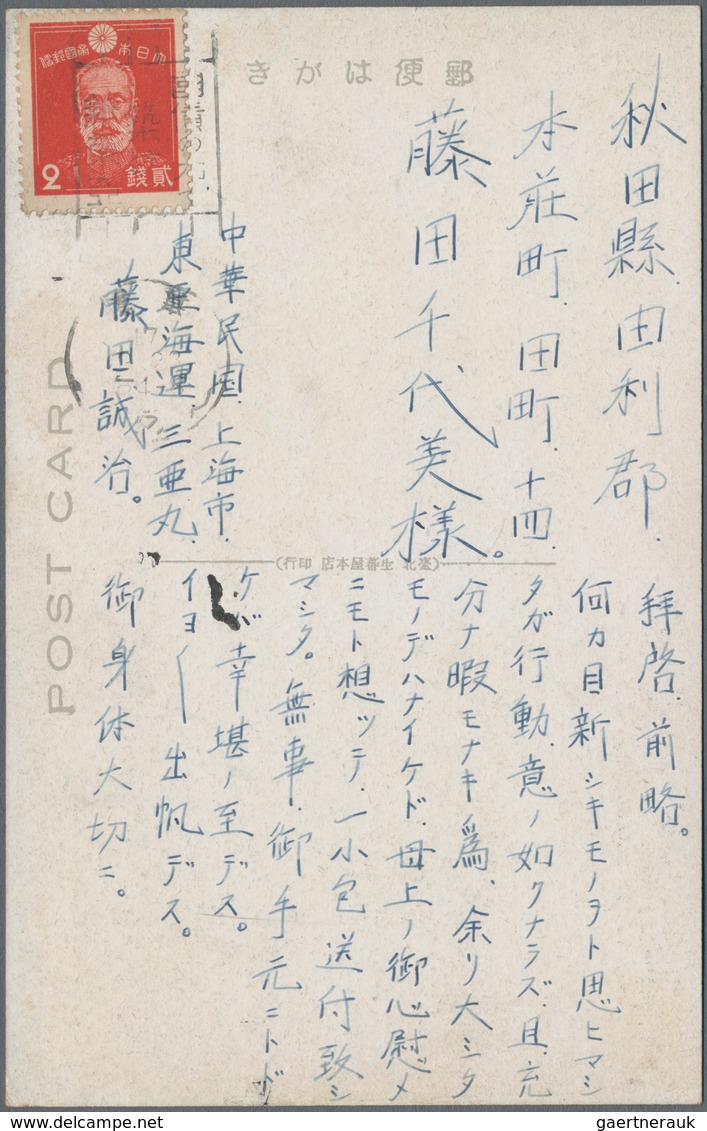 郵便はがき
大日本帝國郵便
2
貳錢
秋田縣.由利郡.
本荘町.田町.十四.
藤田千代美様。
中華民国.上海市.
東亜海運 三亜丸.
藤田誠治。
POST CARD
(臺北 生蕃屋本店 印行)
拝啓.前略。
何カ目新シキモノヲト思ヒマシ
タガ行動.意ノ如クナラズ.且.充
分ナ暇モナキ為、余リ大シタ
モノデハナイケド.母上ノ御心慰メ
ニモト想ッテ.一小包送付致シ
マシタ。無事.御手元ニトド
ケバ幸堪ノ至デス。
イヨ〱出帆デス。
御身体大切ニ。
gaertnerauk